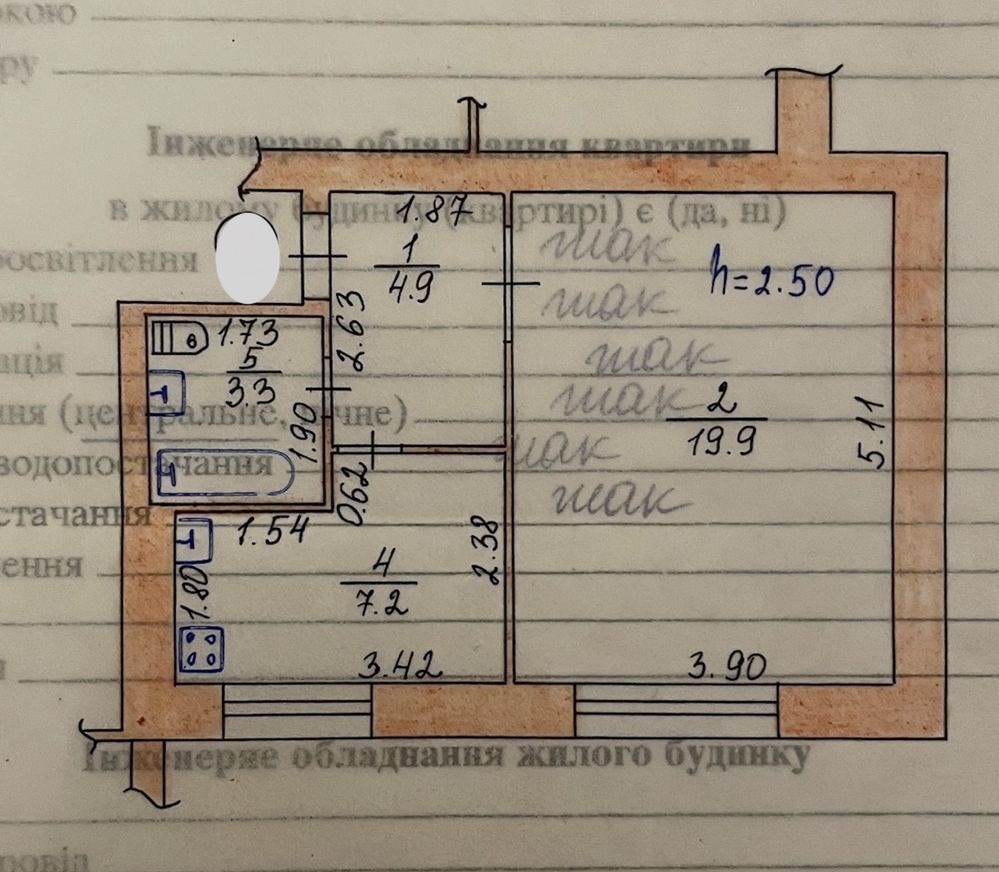 кою
ру
Інженерне обладнання квартири
в жилому будинку (квартирі) є (да, ні)
росвітлення
так
1.87
1
4.9
h=2.50
так
2.63
1.73
5
3.3
так
ація
ння (центральне, ічне)
так
2
19.9
5.11
1.90
водопостачання
так
0.62
стачання
так
1.54
2.38
ення
4
7.2
1.80
3.42
3.90
Інженерне обладнання жилого будинку
ровід